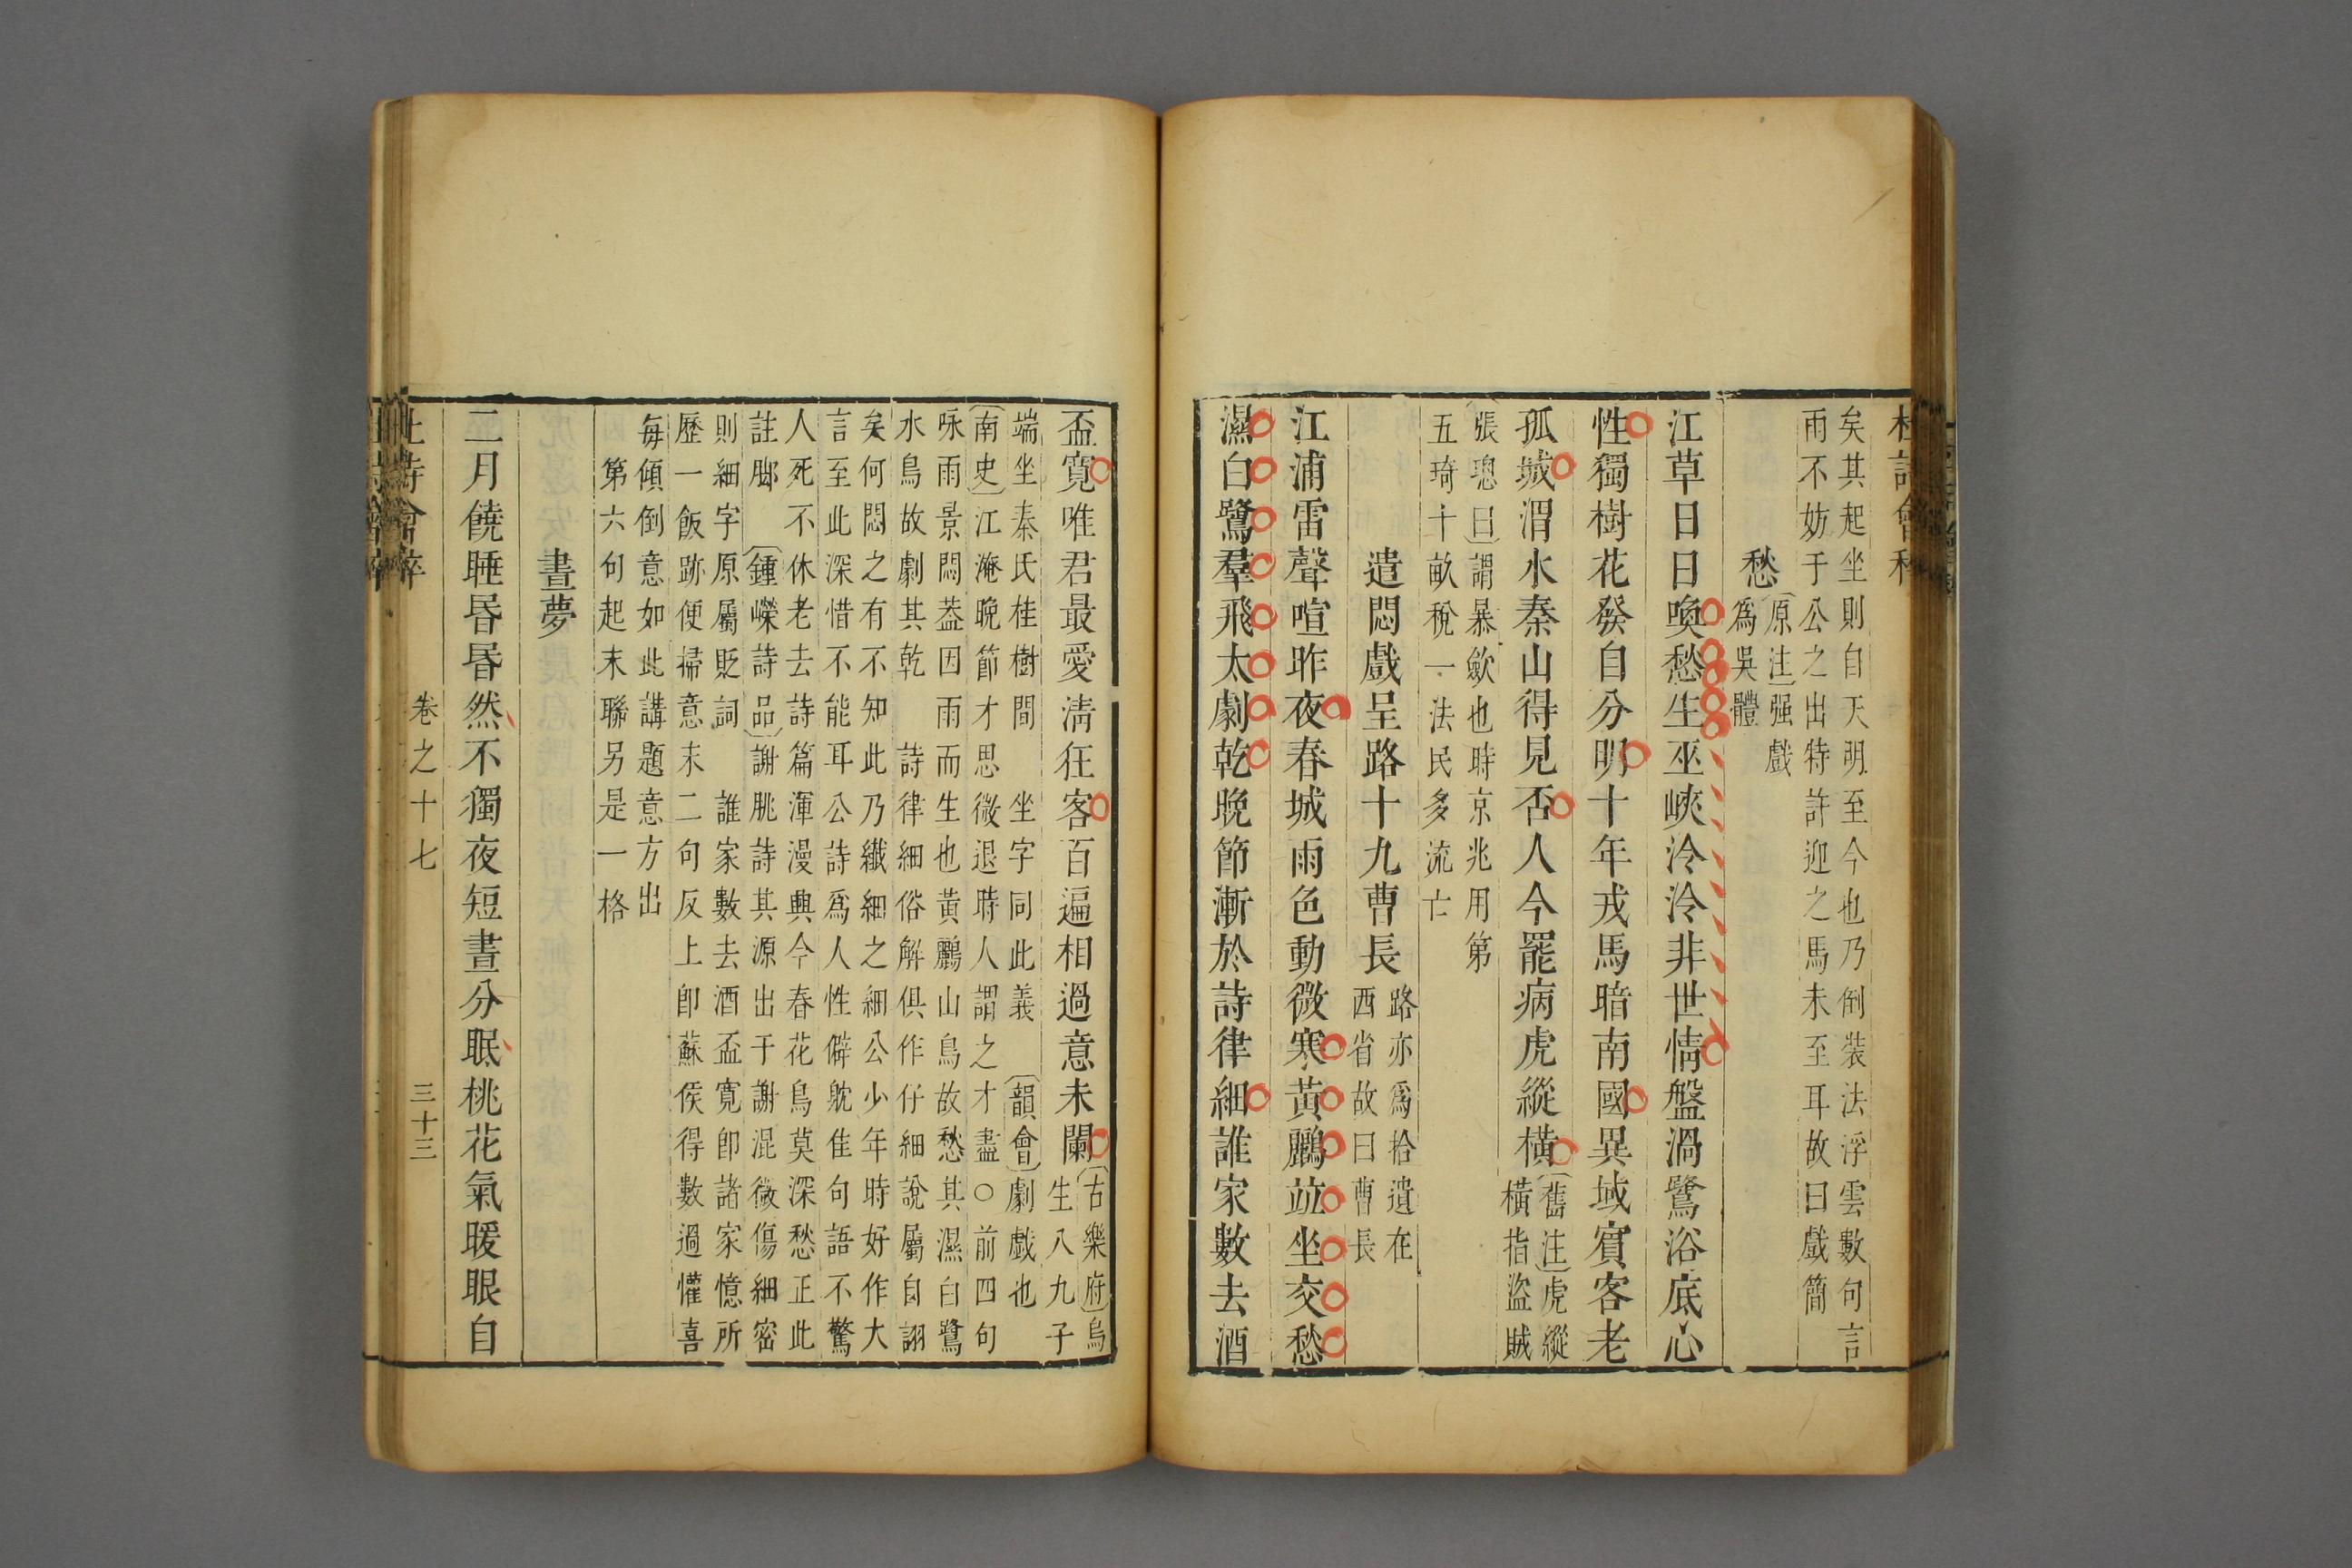 矣其起坐則自天明至今也乃倒裝法浮雲數句言
雨不妨于公之出特許迎之馬未至耳故曰戲簡
愁
原注强戲
爲吳體
江草日日喚愁生巫峽泠泠非世情盤渦鷺浴底心
性獨樹花發自分明十年戎馬暗南國異域賓客老
孤城渭水秦山得見否人今罷病虎縱橫
舊注虎縱
橫指盜賊
張璁曰謂暴斂也時京兆用第
五琦十畝稅一法民多流亡
遣悶戲呈路十九曹長
路亦爲拾遺在
西省故曰曹長
江浦雷聲喧昨夜春城雨色動微寒黃鸝竝坐交愁
濕白鷺羣飛太劇乾晚節漸於詩律細誰家數去酒
盃寬唯君最愛淸狂客百遍相過意未闌
古樂府烏
生八九子
端坐秦氏桂樹間 坐字同此義 韻會劇戲也
南史江淹晚節才思微退時人謂之才盡○前四句
咏雨景悶葢因雨而生也黃鸝山鳥故愁其濕白鷺
水鳥故劇其乾 詩律細俗解俱作仔細說屬自詡
矣何悶之有不知此乃纖細之細公少年時好作大
言至此深惜不能耳公詩爲人性僻躭佳句語不驚
人死不休老去詩篇渾漫興今春花鳥莫深愁正此
註脚 鍾嶸詩品謝朓詩其源出于謝混微傷細密
則細字原屬貶詞 誰家數去酒盃寬卽諸家憶所
歷一飯跡便掃意末二句反上卽蘇侯得數過懽喜
每傾倒意如此講題意方出
第六句起末聯另是一格
晝夢
二月饒睡昏昏然不獨夜短晝分眠桃花氣暖眼自
杜詩會稡 卷之十七 三十三